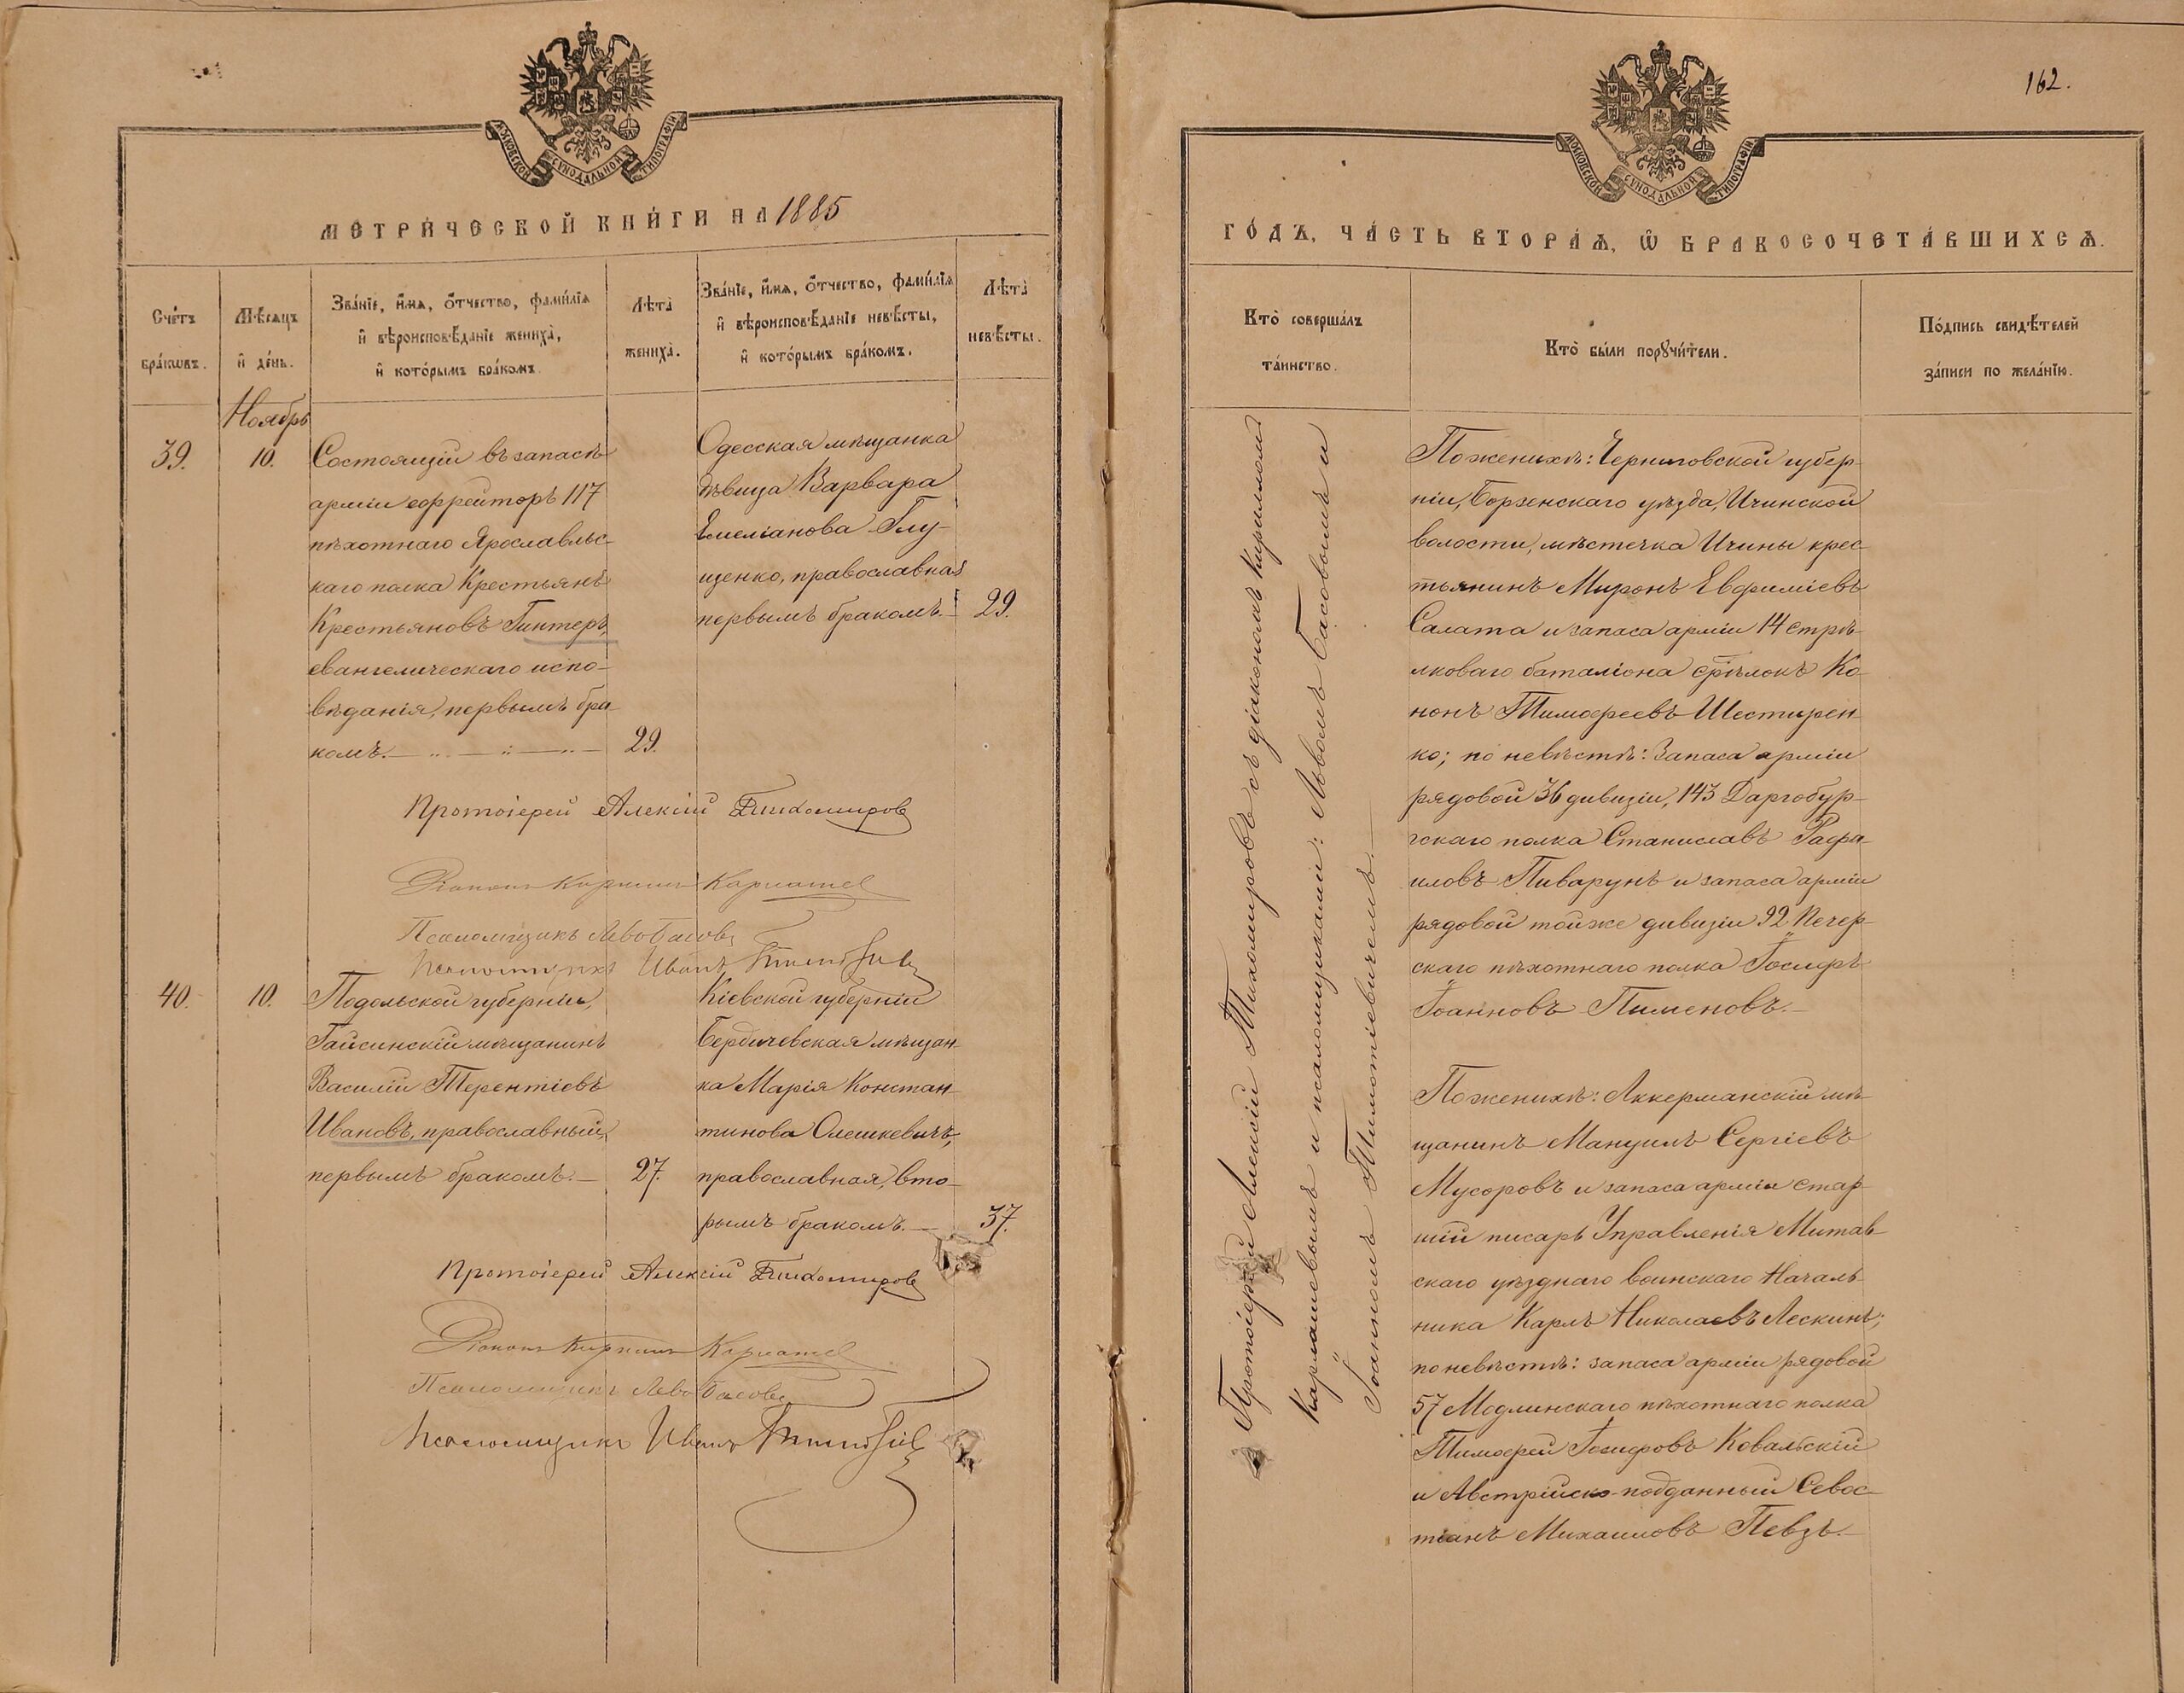 МОСКОВСКОЙ СѴНОДАЛЬНОЙ ТИПОГРАФІИ
МЕТРИ́ЧЕСКОЙ КНИ́ГИ НА 1885
Сче́тъ
бра́кѡвъ.
Мѣ́сѧцъ
и҆ де́нь.
Зва́нїе, и҆́мѧ, ѻ҆́тчество, фами́лїѧ
и҆ вѣроисповѣ́данїе жениха̀,
и҆ кото́рымъ бра́комъ.
Лѣ́та
жениха̀.
Зва́нїе, и҆́мѧ, ѻ҆́тчество, фами́лїѧ
и҆ вѣроисповѣ́данїе невѣ́сты,
и҆ кото́рымъ бра́комъ.
Лѣ́та
невѣ́сты.
Ноябрь
39.
10.
Состоящій въ запасѣ
арміи ефрейторъ 117
пѣхотнаго Ярославльс-
каго полка Крестьянъ
Крестьяновъ Гинтеръ,
евангелическаго испо-
вѣданія, первымъ бра-
комъ.
29.
Одесская мѣщанка
дѣвица Варвара
Емеліанова Глу-
щенко, православная
первымъ бракомъ.
29.
Протоіерей Алексій Тихомировъ
Діаконъ Кириллъ Кармашев
Псаломщикъ Левъ Басовъ
Псаломщикъ Иванъ
40.
10.
Подольской губерніи,
Гайсинскій мѣщанинъ
Василій Терентіевъ
Ивановъ, православный,
первымъ бракомъ.
27.
Кіевской губерніи
Бердичевская мѣщан-
ка Марія Констан-
тинова Олешкевичъ,
православная, вто-
рымъ бракомъ.
37.
Протоіерей Алексій Тихомировъ
Діаконъ Кириллъ Кармашев
Псаломщикъ Левъ Басовъ
Псаломщикъ Иванъ
162.
МОСКОВСКОЙ СѴНОДАЛЬНОЙ ТИПОГРАФІИ
ГО́ДЪ, ЧА́СТЬ ВТОРА́Ѧ, Ѽ БРАКОСОЧЕТА́ВШИХСѦ.
Кто̀ соверша́лъ
та́инство.
Кто̀ бы́ли порꙋчи́тели.
По́дпись свидѣ́телей
за́писи по жела́нїю.
Протоіерей Алексій Тихомировъ съ діакономъ Кирилломъ
Кармашевымъ и псаломщиками: Львомъ Басовымъ и
Іоанномъ Тимотіевичемъ.
По женихѣ: Черниговской губер-
ніи, Борзенскаго уѣзда, Ичинской
волости, мѣстечка Ичины крес-
тьянинъ Миронъ Евфиміевъ
Салата и запаса арміи 14 стрѣ-
лковаго баталіона стрѣлокъ Ко-
нонъ Тимофеевъ Шестирен-
ко; по невѣстѣ: Запаса арміи
рядовой 36 дивизіи, 143 Даргобур-
гскаго полка Станиславъ Рафа-
иловъ Пиварунъ и запаса арміи
рядовой тойже дивизіи 92 Печер-
скаго пѣхотнаго полка Іосифъ
Іоанновъ Пименовъ.
По женихѣ: Аккерманскій мѣ-
щанинъ Мануилъ Сергіевъ
Мусоровъ и запаса арміи стар-
шій писарь Управленія Митав-
скаго уѣзднаго воинскаго Началь-
ника Карлъ Николаевъ Лескинъ;
по невѣстѣ: запаса арміи рядовой
57 Модлинскаго пѣхотнаго полка
Тимофей Іосифовъ Ковальскій
и Австрійско-подданный Севос-
тіанъ Михаиловъ Певзъ.